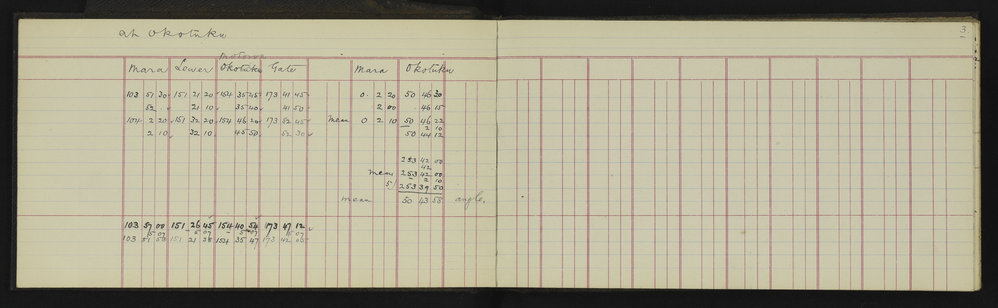 at Okotuku
3
Motoroa
Mara Lower Okotuku Gate Mara Okotuku
103 51 20 151 21 20 154 35 45 173 41 45 0 2 20 50 46 30
52 . 21 10 35 40 41 50 2 00 . 46 15
104 2 20 151 32 20 154 46 20 173 52 45 mean 0 2 10 50 46 22
2 10 32 10 45 50 52 30 2 10
50 44 12
253 42 00
42
mean 253 42 00
2 10
5) 253 39 50
mean 50 43 58 angle.
103 57 00 151 26 45 154 40 54 173 47 12
5 07 5 07 5 07 5 07
103 51 53 151 21 38 154 35 47 173 42 05